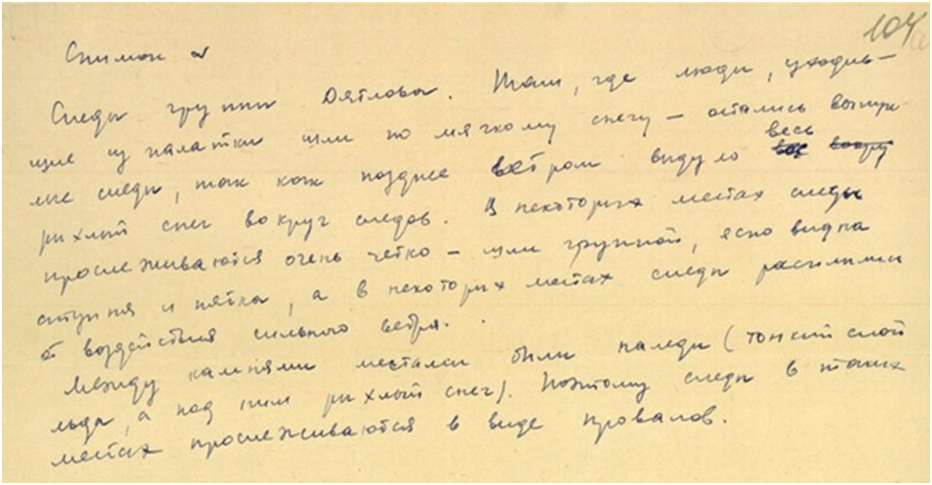 104а
Снимок №
Следы группы Дятлова. Там, где люди, уходив-
шие из палатки шли по мягкому снегу – остались выпук-
лые следы, так как позднее ветром выдуло весь
рыхлый снег вокруг следов. В некоторых местах следы
прослеживаются очень четко – шли группой, ясно видна
ступня и пятка, а в некоторых местах следы расплылись
от воздействия сильного ветра.
Между камнями местами были наледи (тонкий слой
льда, а под ним рыхлый снег). Поэтому следы в таких
местах прослеживаются в виде провалов.